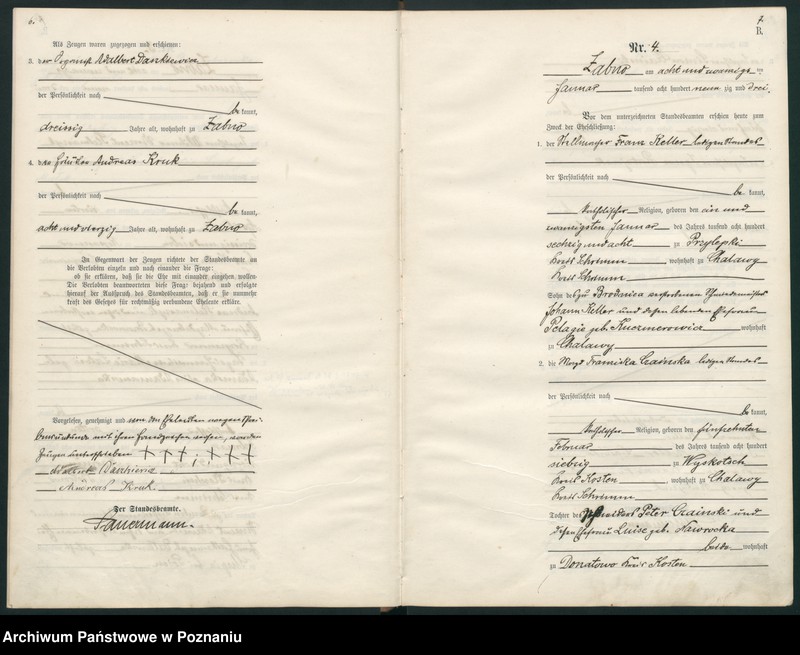 6.
Als Zeugen waren zugezogen und erschienen:
3. der Adalbert Dankiewicz
der Persönlichkeit nach
be kannt,
dreissig Jahre alt, wohnhaft zu Zabno
4. der Andreas Kruk
der Persönlichkeit nach
be kannt,
acht und vierzig Jahre alt, wohnhaft zu Zabno
In Gegenwart der Zeugen richtete der Standesbeamte an
die Verlobten einzeln und nach einander die Frage:
ob sie erklären, daß sie die Ehe mit einander eingehen wollen.
Die Verlobten beantworteten diese Frage bejahend und erfolgte
hierauf der Ausspruch des Standesbeamten, daß er sie nunmehr
kraft des Gesetzes für rechtmäßig verbundene Eheleute erkläre.
Vorgelesen, genehmigt und von den Eheleuten wegen Schrei-
bensunkunde mit ihren Handzeichen versehen, von den
Zeugen unterschrieben +++; +++
Andreas Kruk
Der Standesbeamte.
7.
B.
Nr. 4.
Zabno am acht und zwanzigs ten
Januar tausend acht hundert neun zig und drei.
Vor dem unterzeichneten Standesbeamten erschien heute zum
Zweck der Eheschließung:
1. der Stellmacher Franz Keller ledigen Standes
der Persönlichkeit nach
be kannt,
katholischer Religion, geboren den ein und
zwanzigsten Januar des Jahres tausend acht hundert
sechzig und acht zu Przylepki
Kreis Schrimm, wohnhaft zu Chalawy
Kreis Schrimm
Sohn des zu Brodnica verstorbenen
Johann Keller und dessen lebenden Ehefrau
Pelagie geb. Kuczmerowicz wohnhaft
zu Chalawy
2. die Magd Franziska Czainska ledigen Standes
der Persönlichkeit nach
be kannt,
katholischer Religion, geboren den fünfzehnten
Februar des Jahres tausend acht hundert
siebzig zu Wyskotsch
Kreis Kosten, wohnhaft zu Chalawy
Kreis Schrimm
Tochter des Peter Czainski und
dessen Ehefrau Luise geb. Nawrocka
beide wohnhaft
zu Donatowo Kreis Kosten
Archiwum Państwowe w Poznaniu